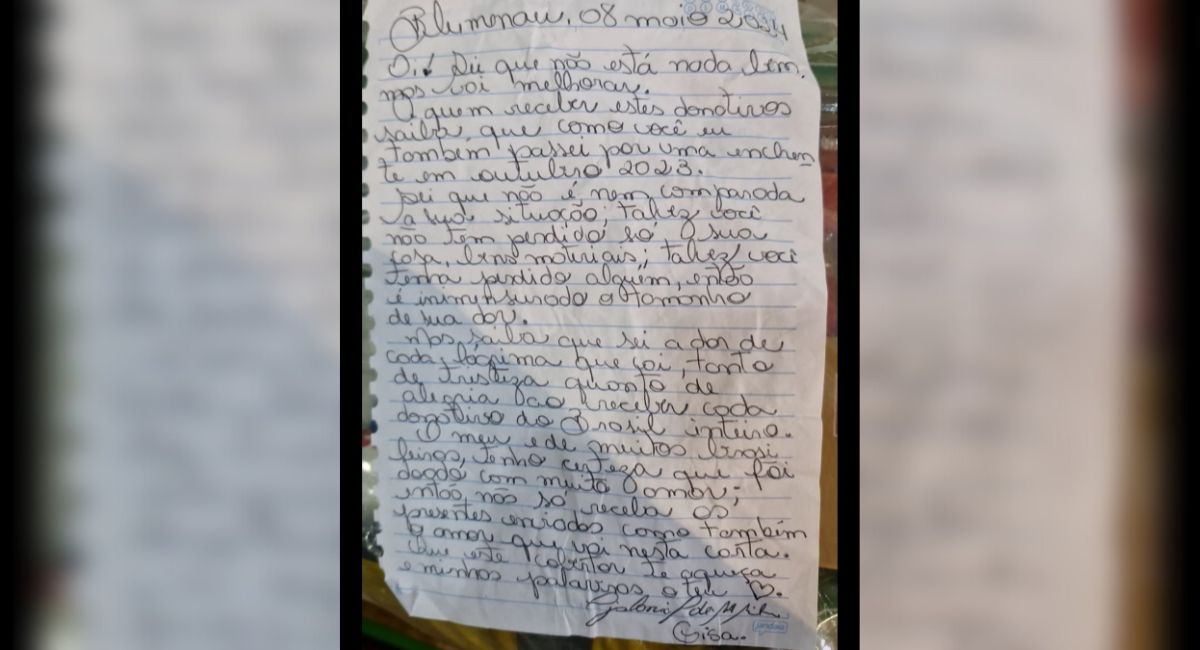 Blumenau, 08 maio 2024
Oi! Sei que não está nada bem,
mas vai melhorar.
A quem receber estes donativos
saiba, que como você eu
também passei por uma enchen
te em outubro 2023.
Sei que não é nem comparada
a sua situação, talvez você
não tem perdido só a sua
casa, bens materiais; talvez você
tenha perdido alguém, então
é inimensurado o tamanho
de sua dor.
Mas saiba que sei a dor de
cada lágrima que cai, tanto
de tristeza quanto de
alegria ao receber cada
donativo do Brasil inteiro.
O meu e de muitos brasi
leiros, tenho certeza que foi
doado com muito amor;
então não só receba os
presentes enviados como também
o amor que vai nesta carta.
Que este cobertor te aqueça
e minhas palavras o teu ♡.
Gisa.
jandaia